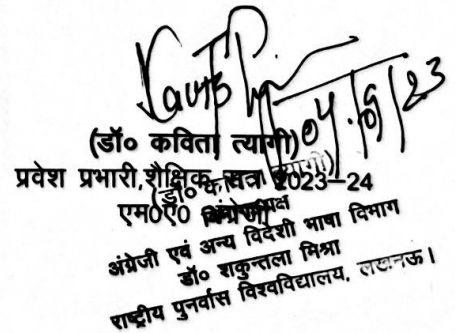 04.09.23
(डॉ० कविता त्यागी)
प्रवेश प्रभारी, शैक्षिक सत्र 2023–24
(डॉ० कविता त्यागी)
एम०ए० अंग्रेजी
अंग्रेजी एवं अन्य विदेशी भाषा विभाग
डॉ० शकुन्तला मिश्रा
राष्ट्रीय पुनर्वास विश्वविद्यालय, लखनऊ।